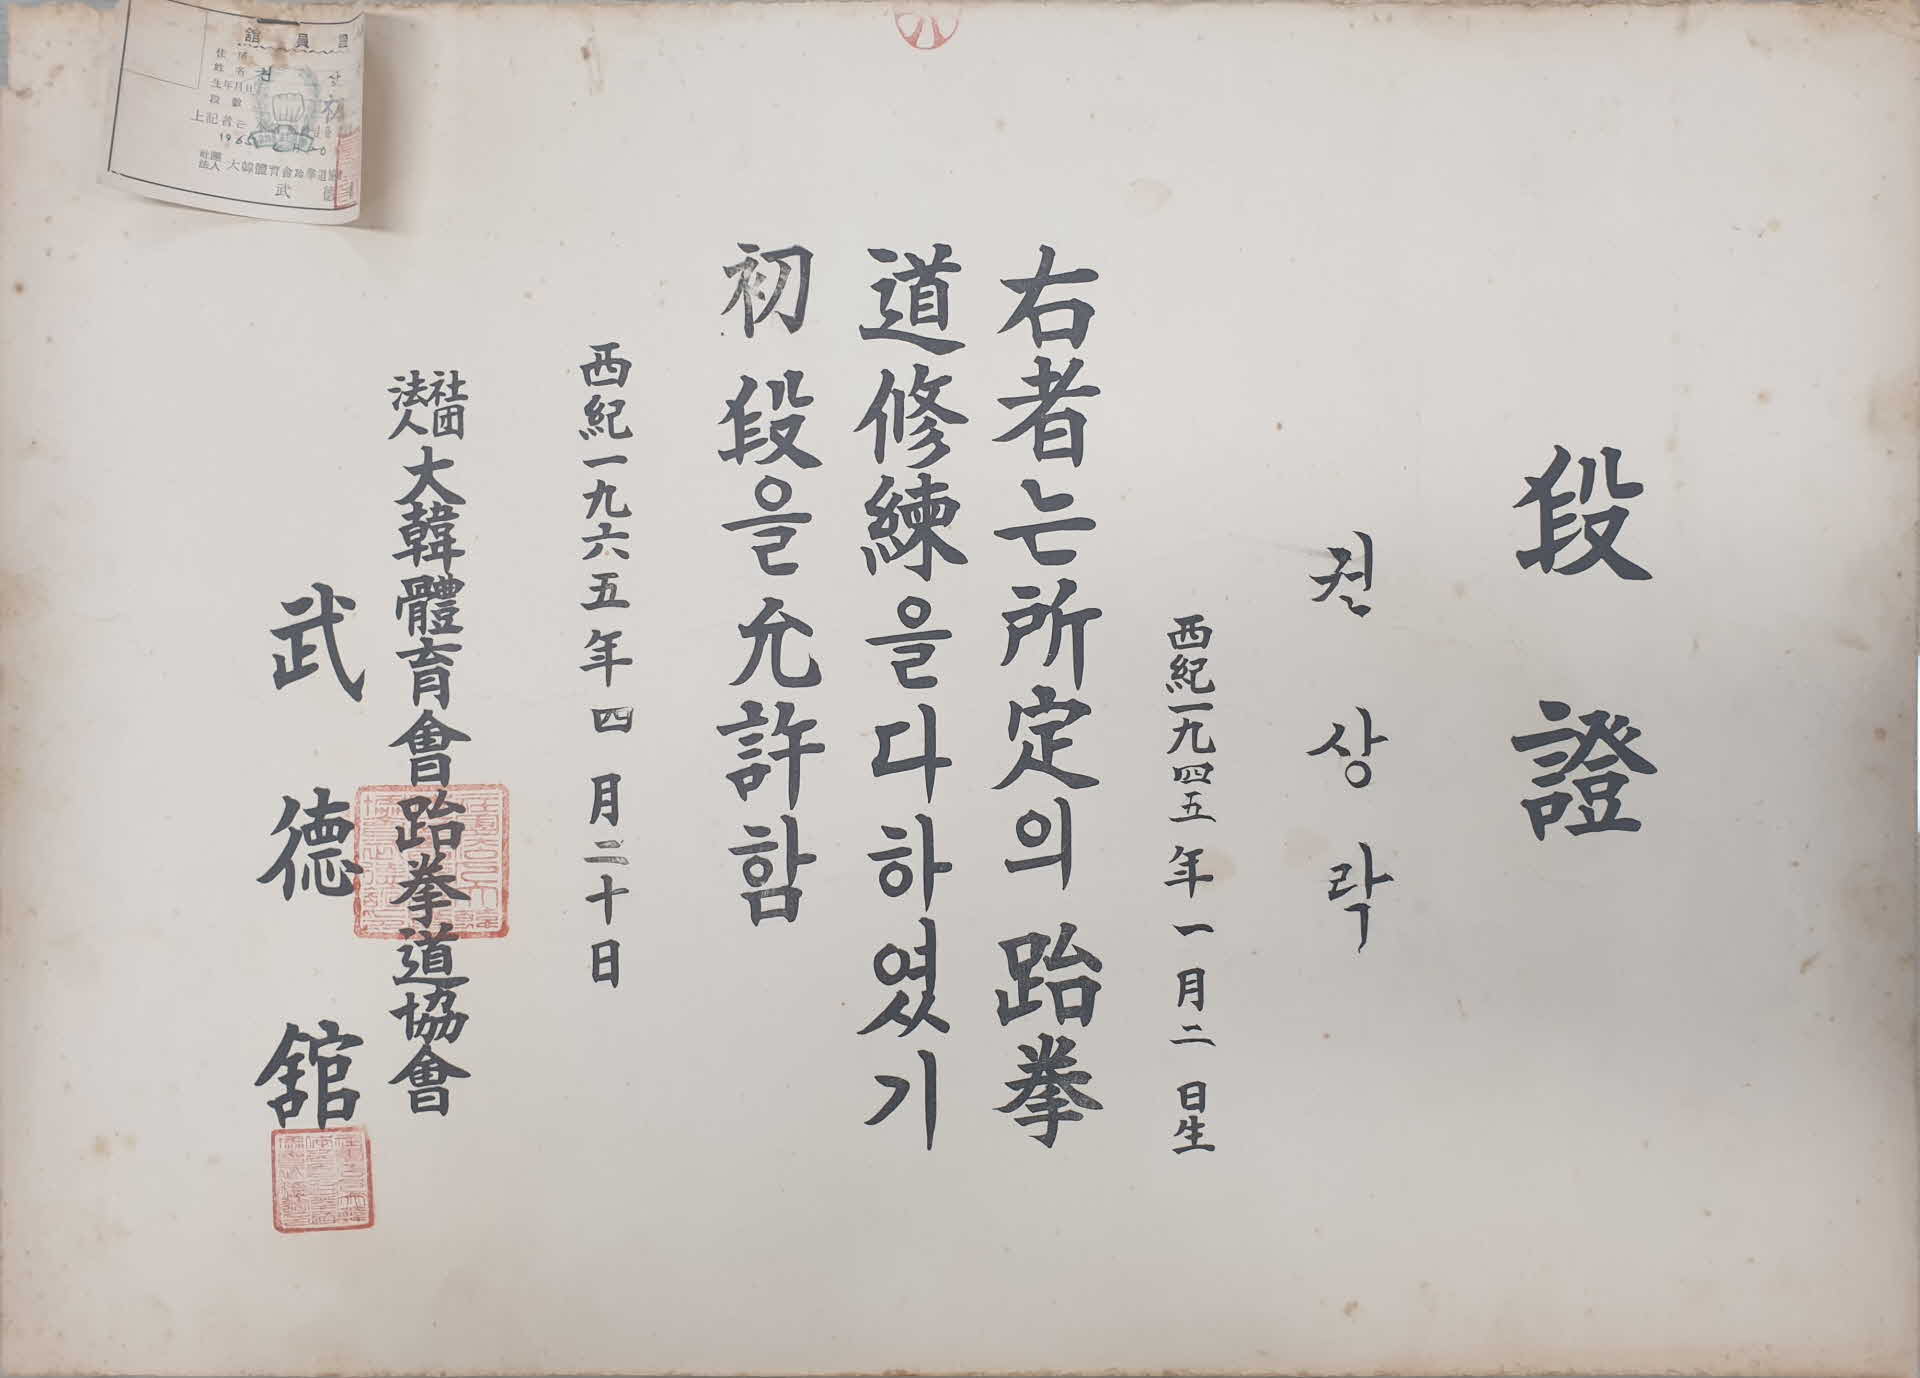 段證
권상락
西紀一九四五年一月二日生
右者는所定의跆拳
道修練을다하였기
初段을允許함
西紀一九六五年四月二十日
社団法人大韓體育會跆拳道協會
武德館
館員證
住所
姓名 권 상
生年月日
段數 初
上記者는
1965 4 20
社團法人 大韓體育會跆拳道協
武德